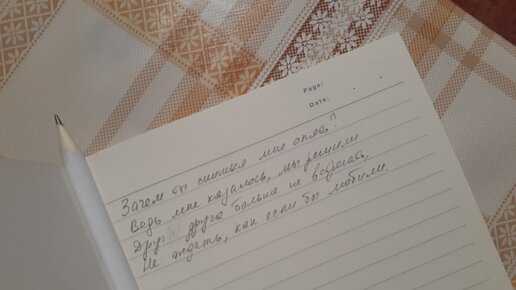 Page:
Date: . .
Зачем ты снишься мне опять?
Ведь мне казалось, мы решили
Друг друга больше не видеть,
Не ждать, как если бы любили.